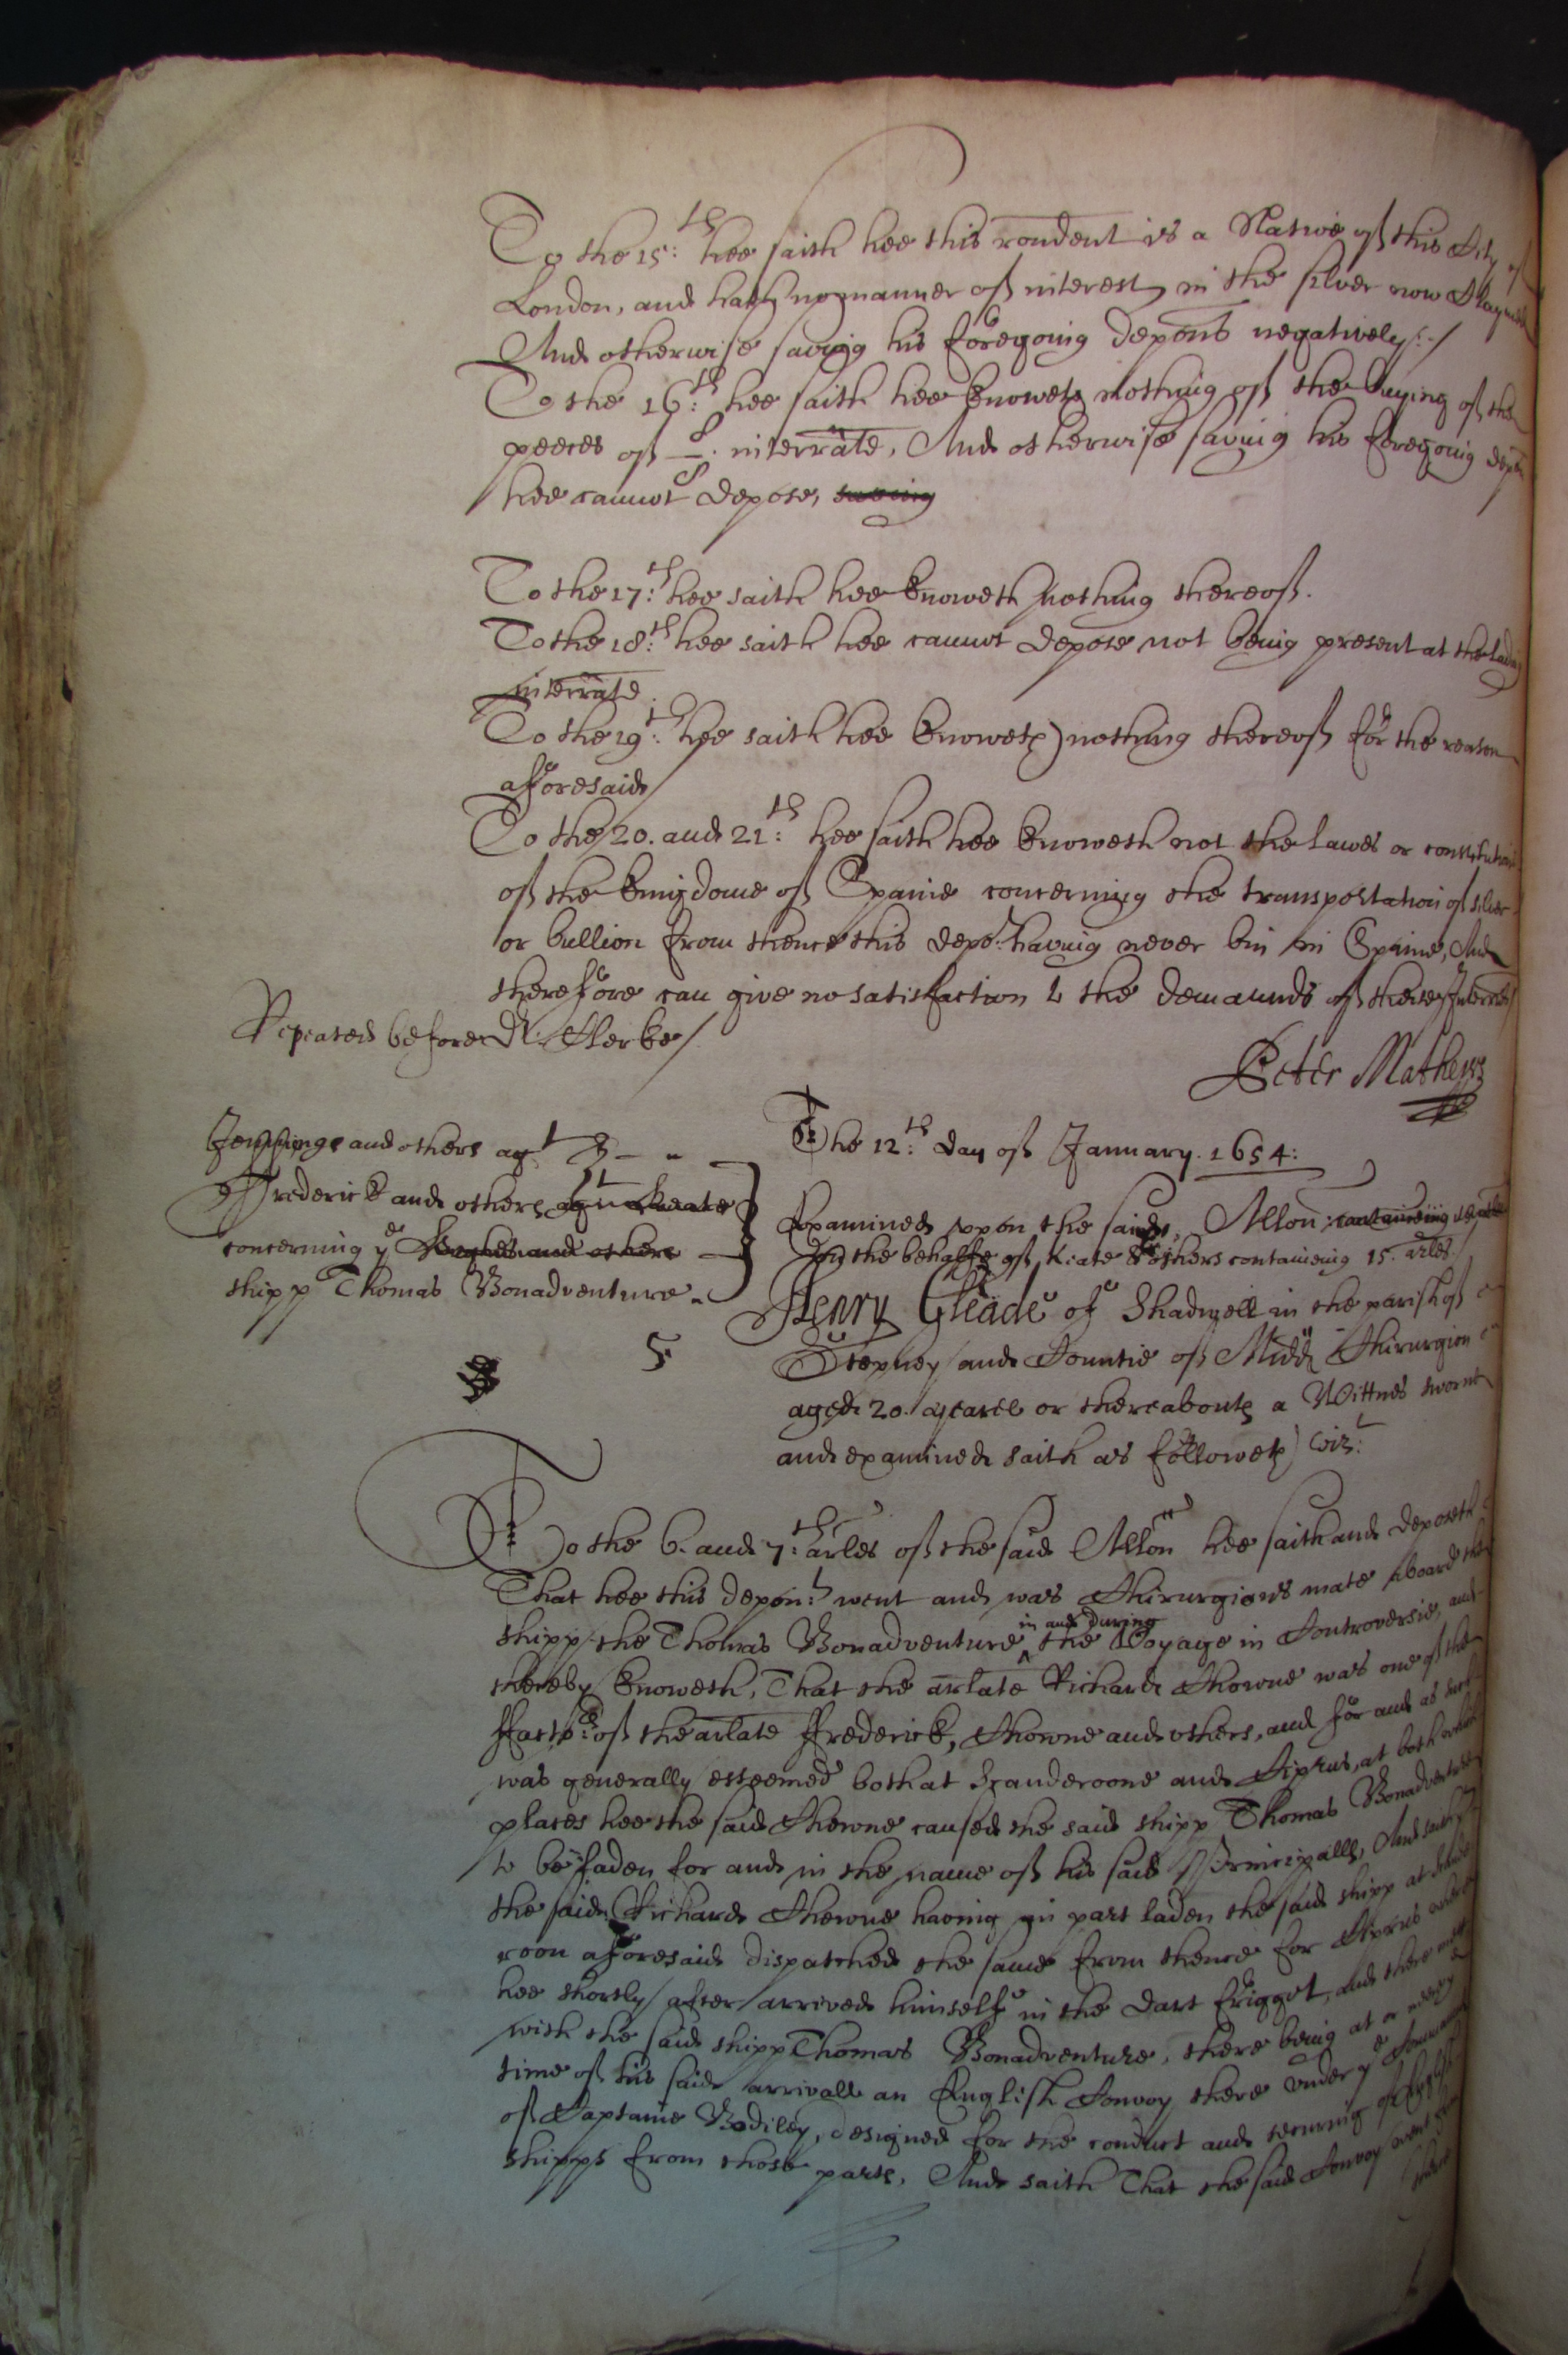 To the 15:th hee saith hee this rondent is a Native of this City of
London, and hath no manner of interest in the silver now Claymed
And otherwise saving his foregoing depons negatively./
To the 16:th hee saith hee knoweth nothing of the buying of the
peeces of 8/8. interrate, And otherwise saving his foregoing depon
hee cannot depose, saving
To the 17:th hee saith hee knoweth nothing thereof.
To the 18:th hee saith hee cannot depose not being present at the lading
interrate.
To the 19:th hee saith hee knoweth nothing thereof for the reason
afforesaid/
To the 20. and 21:th hee saith hee knoweth not the lawes or constitutions
of the kingdome of Spaine concerning the transportation of silver
or bullion from thence this depo:t having never bin in Spaine, And
therefore can give no satisfaction to the demaunds of these Interries/
Repeated before Dr. Clerke/
Peter Mathews
The 12:th day of January. 1654:
Jennings and others agt
Frederick and others agt Keate
concerning ye Hughes and others
shipp Thomas Bonadventure.
Examined upon the said Allon: contaureing
on the behalfe of Keate & others containeing 15. arles.
Henry Gleade of Shadwell in the parish of
Stepney and Countie of Middx Chirurgion
aged 20. yeares or thereabouts a Wittnes sworne
and examined saith as followeth vizt:
5.
To the 6. and 7:th arles of the said Allon hee saith and deposeth
That hee this depon:t went and was Chirurgions mate aboard the
shipp the Thomas Bonadventure in and during the Voyage in Controversie, and
thereby knoweth, That the arlate Richard Chowne was one of the
ffactors of the arlate ffrederick, Chowne and others, and for and as such
was generally esteemed both at Scanderoone and Ciprus, at both which
places hee the said Chowne caused the said shipp Thomas Bonadventure
to be laden for and in the name of his said Principalls, And saith
the said Richard Chowne having in part laden the said shipp at Scande
roon aforesaid dispatched the same from thence for Ciprus where
hee shortly after arrived himselfe in the Dart friggot, and there mett
with the said shipp Thomas Bonadventure, there being at or
time of his said arrivall an English Convoy there under ye Command
of Captaine Bodiley, designed for the conduct and securing of English
shipps from those parts, And saith That the said Convoy went from
thence